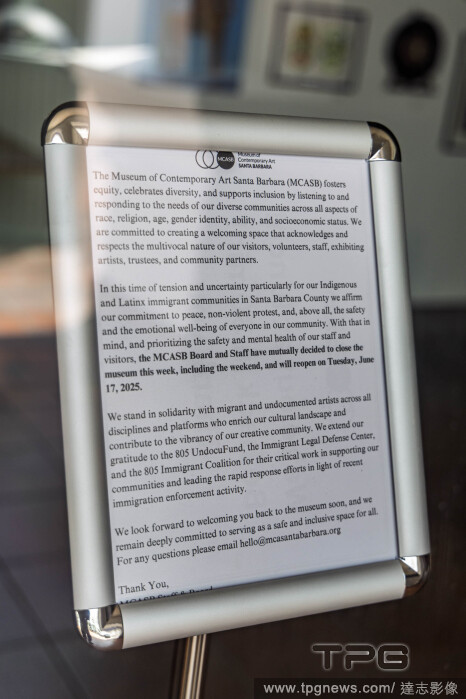 MCASB
Museum of
Contemporary Art
SANTA BARBARA
The Museum of Contemporary Art Santa Barbara (MCASB) fosters
equity, celebrates diversity, and supports inclusion by listening to and
responding to the needs of our diverse communities across all aspects of
race, religion, age, gender identity, ability, and socioeconomic status. We
are committed to creating a welcoming space that acknowledges and
respects the multivocal nature of our visitors, volunteers, staff, exhibiting
artists, trustees, and community partners.
In this time of tension and uncertainty particularly for our Indigenous
and Latinx immigrant communities in Santa Barbara County we affirm
our commitment to peace, non-violent protest, and, above all, the safety
and the emotional well-being of everyone in our community. With that in
mind, and prioritizing the safety and mental health of our staff and
visitors, the MCASB Board and Staff have mutually decided to close the
museum this week, including the weekend, and will reopen on Tuesday, June
17, 2025.
We stand in solidarity with migrant and undocumented artists across all
disciplines and platforms who enrich our cultural landscape and
contribute to the vibrancy of our creative community. We extend our
gratitude to the 805 UndocuFund, the Immigrant Legal Defense Center,
and the 805 Immigrant Coalition for their critical work in supporting our
communities and leading the rapid response efforts in light of recent
immigration enforcement activity.
We look forward to welcoming you back to the museum soon, and we
remain deeply committed to serving as a safe and inclusive space for all.
For any questions please email hello@mcasantabarbara.org
Thank You,
TPG
www.tpgnews.com / 達志影像